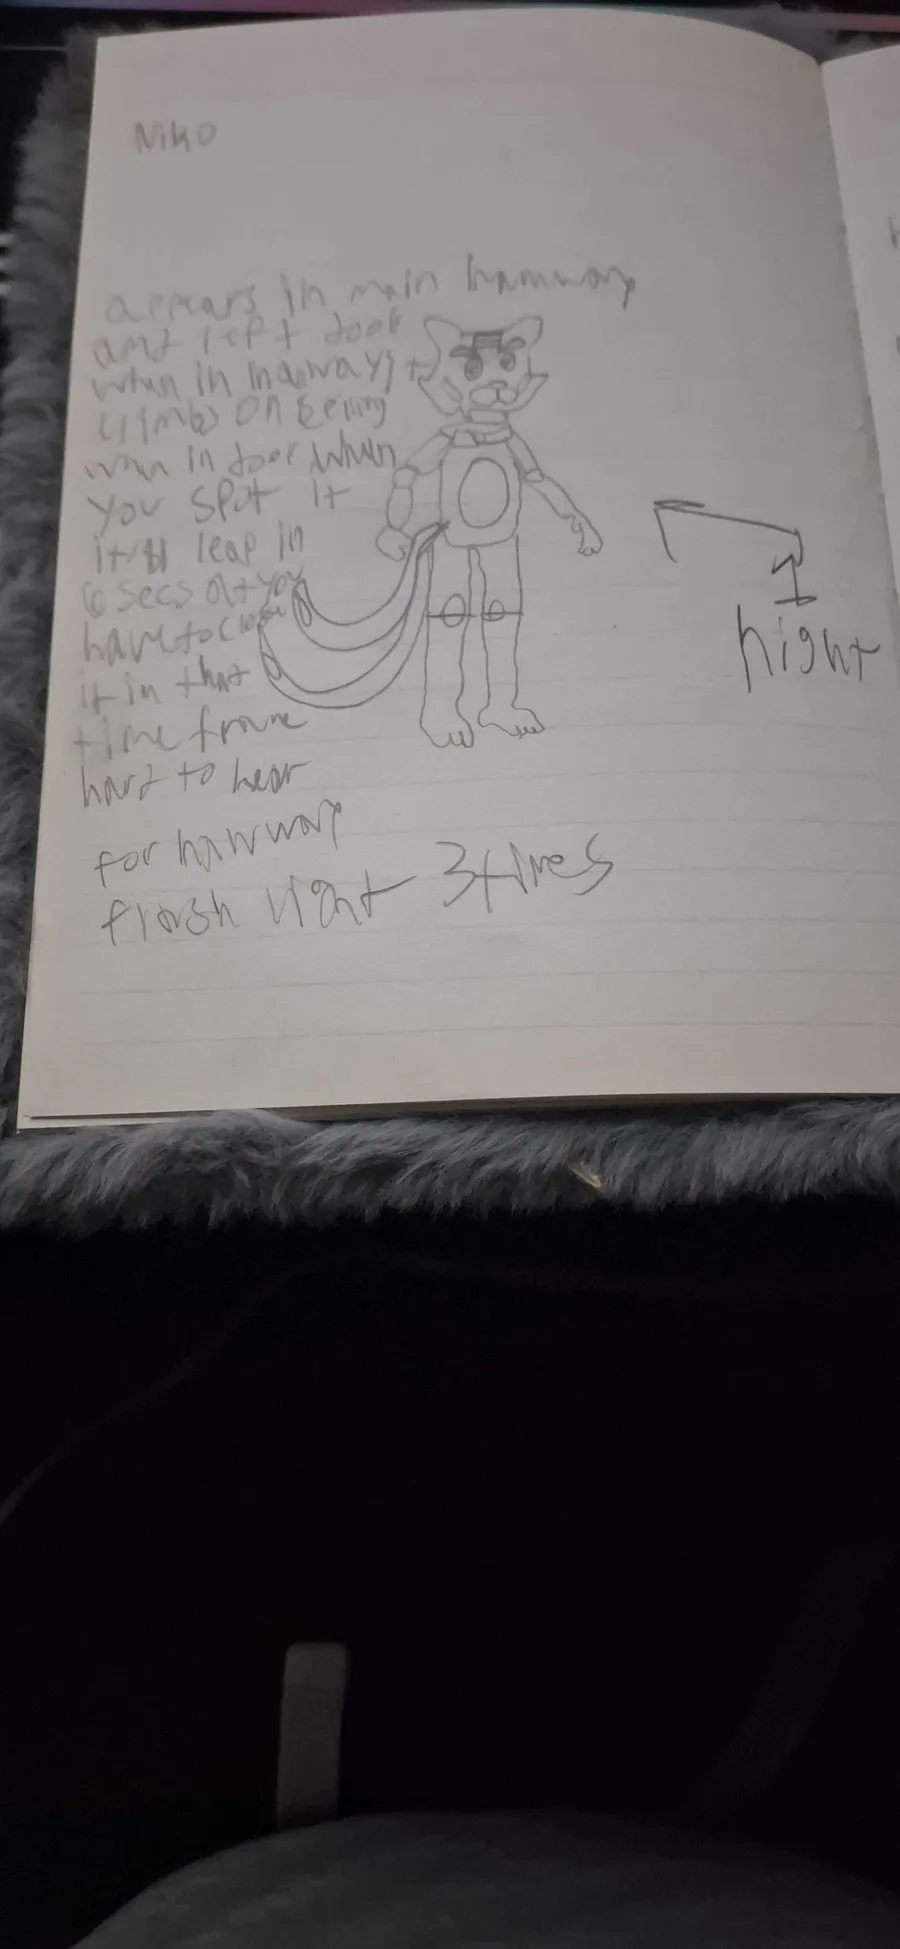 Niko
appears in main hallway
and left door
when in hallway, it
climbs on ceiling
when in door when
you spot it
it'll leap in
6 secs at you
have to close
it in that
time frame
hard to hear
for hallway
flash light 3 times
hight